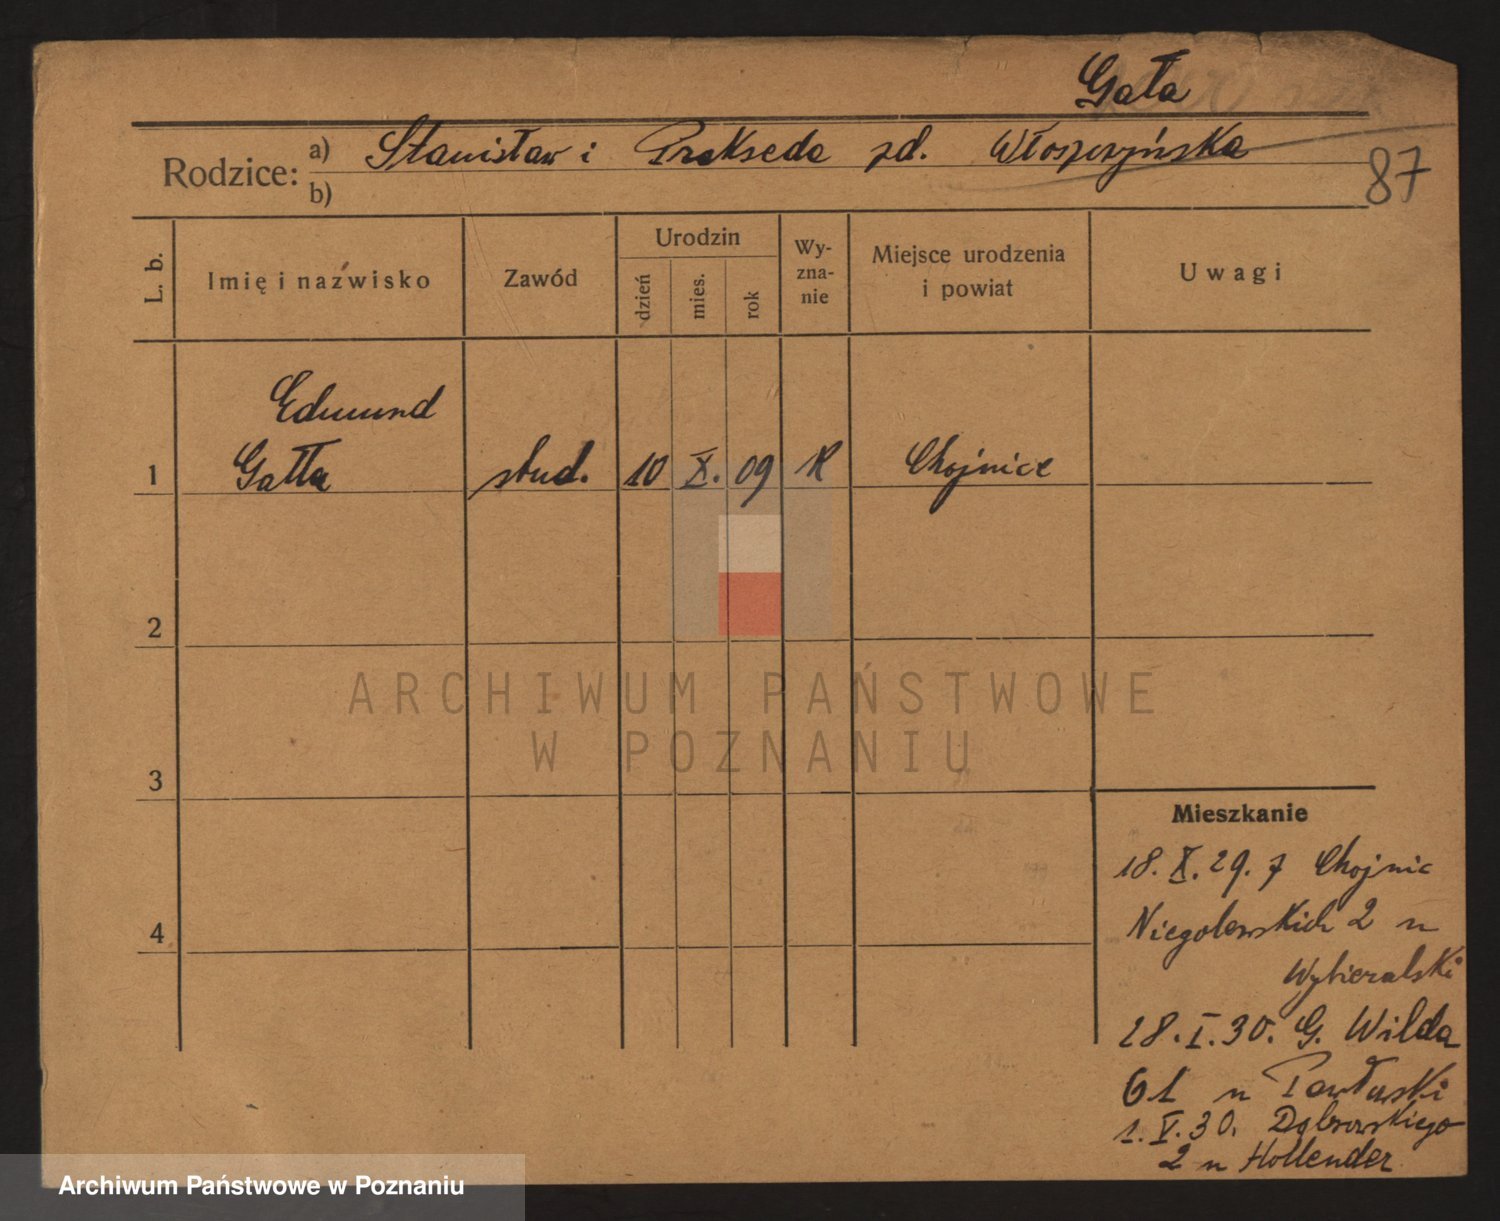 Gała
Rodzice: a) Stanisław i Prakseda zd. Włoszczyńska
b)
87
L. b.
Imię i nazwisko
Zawód
Urodzin
dzień
mies.
rok
Wy-
zna-
nie
Miejsce urodzenia
i powiat
Uwagi
Edmund
1 Gałła stud. 10 X. 09 K Chojnice
2
3
4
ARCHIWUM PAŃSTWOWE
W POZNANIU
Mieszkanie
18.X.29. z Chojnic
Niegolewskich 2 u
Wybieralski
28.I.30. G. Wilda
61 u Pawłuski
1.V.30. Dąbrowskiego
2 u Hollender
Archiwum Państwowe w Poznaniu